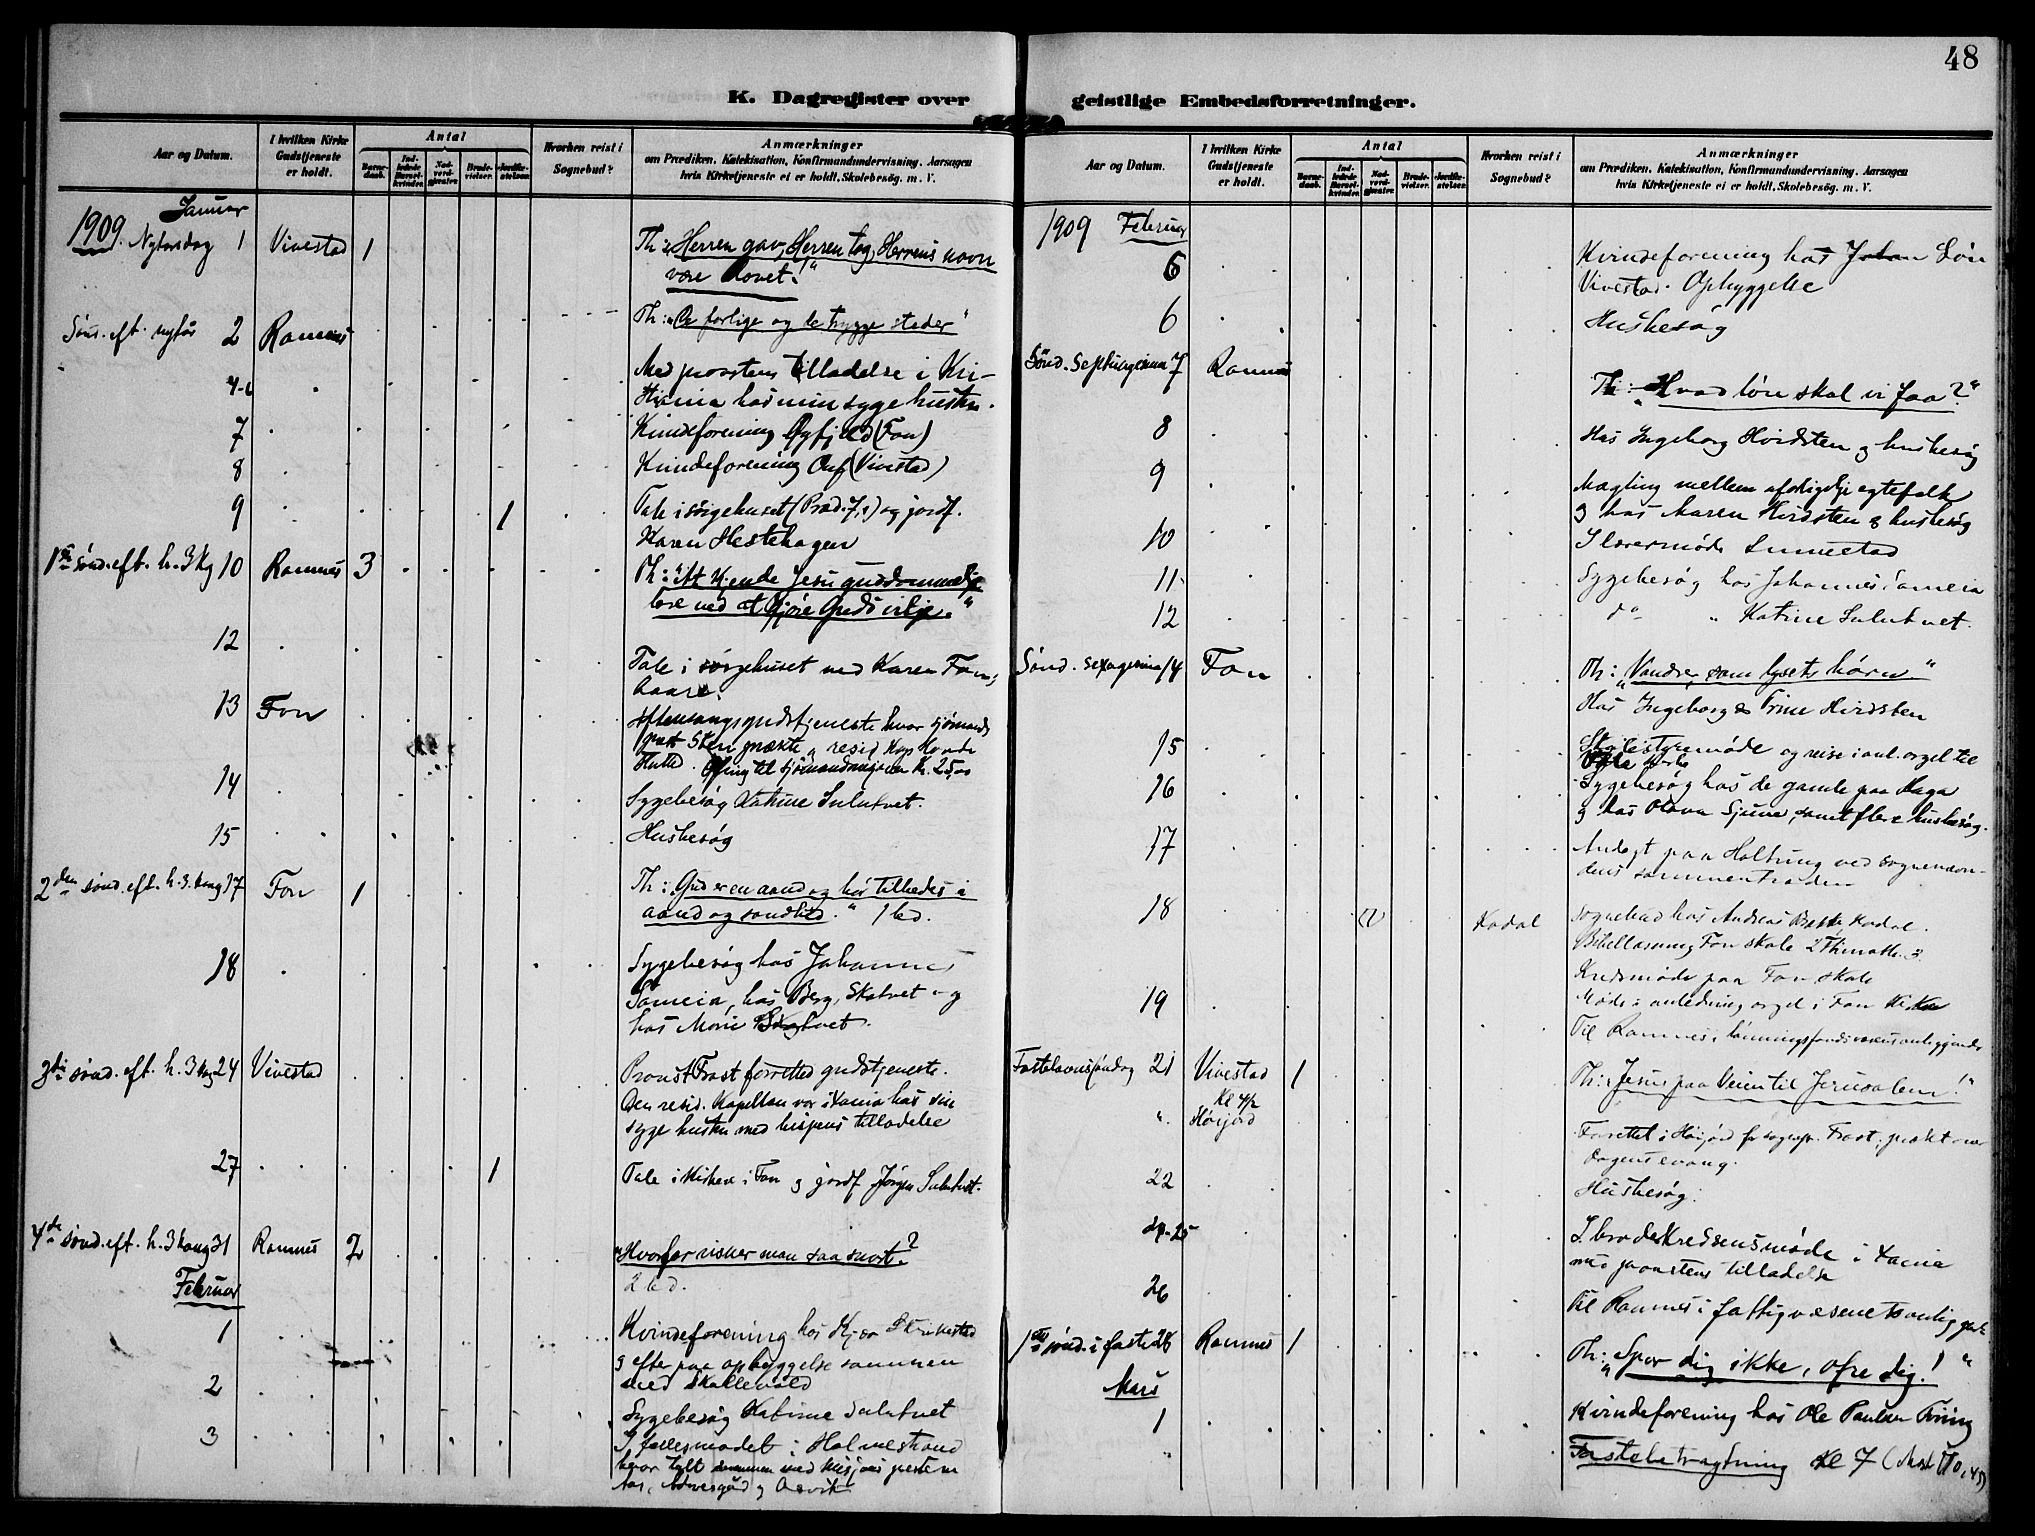 48
K. Dagregister over geistlige Embedsforretninger.
Aar og Datum.
I hvilken Kirke Gudstjeneste er holdt.
Antal
Barnedaab.
Indledede Barselkvinder.
Nadverdgjæster.
Brudevielser.
Jordfæstelser.
Hvorhen reist i Sognebud?
Anmærkninger
om Prædiken, Katekisation, Konfirmandundervisning, Aarsagen
hvis Kirketjeneste ei er holdt, Skolebesøg, m. V.
Januar
1909. Nytarsdag 1 Vivestad 1 Th: "Herren gav, Herren tog, Herrens navn
være lovet!"
Sønd. eft. nytår 2 Ramnes Th: "De farlige og de trygge steder"
4-6 Med provstens tilladelse i Kri-
stiania hos min syge hustru.
7 Kvindeforening (Fon)
8 Kvindeforening (Vivestad)
9 1 Tale i sørgehuset (Præd. 7,2) og jordf.
Karen Hestehagen
1ste sønd. eft. h. 3 kg 10 Ramnes 3 Th: "At kjende Jesu guddommelige
lære ved at gjøre Guds vilje."
12 Tale i sørgehuset ved Karen Fons
baare.
13 Fon Aftensangsgudstjeneste hvor sjømands
prest Sten prækte, resid. Kap.
Ofring til sjømandsmisjonen Kr. 25,00
14 Sygebesøg Katrine Sulutvet.
15 Husbesøg
2den sønd. eft. h. 3 kong 17 Fon 1 Th: "Gud er en aand og bør tilbedes i
aand og sandhed." 1 bd.
18 Sygebesøg hos Johannes
Sameia, hos Berg, Skatvet og
hos Marie
3die sønd. eft. h. 3 kg 24 Vivestad Provst Frost forretted gudstjeneste.
Den resid. Kapellan var i Xania hos sin
syge hustru med bispens tilladelse
27 1 Tale i kirken i Fon og jordf. Jørgen Sulutvet.
4de sønd. eft. h. 3 kong 31 Ramnes 2 "Hvorfor visner man saa snart?"
2 bd.
Februar
1 Kvindeforening hos
og efterpaa opbyggelse sammen
med Skallevold
2 Sygebesøg Katrine Sulutvet
3 I fællesmødet i Holmestrand
hvor talt sammen med misjonsprestene
Aar og Datum.
I hvilken Kirke Gudstjeneste er holdt.
Antal
Barnedaab.
Indledede Barselkvinder.
Nadverdgjæster.
Brudevielser.
Jordfæstelser.
Hvorhen reist i Sognebud?
Anmærkninger
om Prædiken, Katekisation, Konfirmandundervisning, Aarsagen
hvis Kirketjeneste ei er holdt, Skolebesøg, m. V.
1909 Februar
5 Kvindeforening hos
Vivestad. Opbyggelse
6 Husbesøg
Sønd. Septuagesima 7 Ramnes Th: "Hvad løn skal vi faa?"
8 Hos Ingeborg Hvidsten og husbesøg
9 Mægling mellem uforligelige egtefolk
og hos Maren Hvidsten og husbesøg
10 I lærermøde Linnestad
11 Sygebesøg hos Johannes Sameia
12 do " Katrine Sulutvet.
Sønd. Sexagesima 14 Fon Th: "Vandrer som lysets børn"
Hos Ingeborg og Trine Hvidsten
15 Skolestyremøde og reise i anl. orgel til
16 Sygebesøg hos de gamle paa Haga
og hos Olava Gjuve, samt flere husbesøg.
17 Andagt paa Holtung ved sognenævn-
dens sammentræden
18 (1) Kodal Sognebud hos Andreas Kodal.
Bibellæsning Fon skole 2 Timoth. 3.
Kredsmøde paa Fon skole
19 Møde i anledning orgel i Fon kirke
Til Ramnes i
Fastelavnssøndag 21 Vivestad 1 Th: "Jesus paa Veien til Jerusalem!"
" Kl 4½
Høijord Forrettet i Høijord for sognepr. Frost, prækt over
dagens evang.
22 Husbesøg.
24-25 I broderkredsens møde i Xania
med provstens tilladelse
26 Til Ramnes i fattigvæsenets anliggende
1ste sønd. i faste 28 Ramnes 1 Th: "Spar dig ikke, ofre dig!"
Mars
1 Kvindeforening hos Ole Paulsen
Fastebetragtning Kl 7